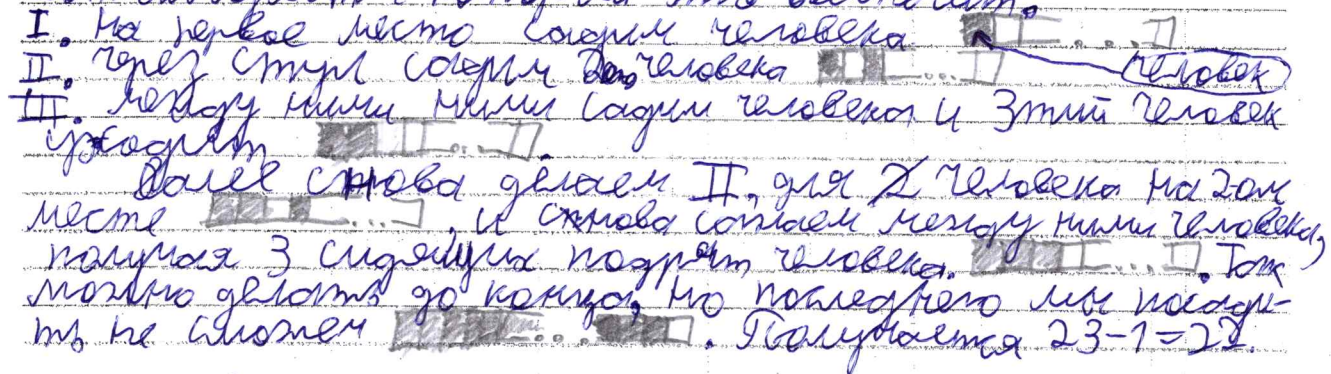 I. На первое место садим человека
человек
II. Через стул садим человека
III. между ними ними садим человека и этий человек
уходит
Далее снова делаем II. для 2 человека на 2ом
месте , и снова сажаем между ними человека,
получая 3 сидящих подрят человека. . Так
можно делать до конца, но последнего мы посади-
ть не сможем . Получается 23-1=22.